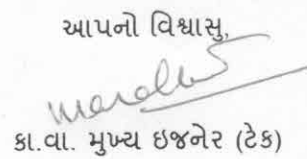 આપનો વિશ્વાસુ,
કા.વા. મુખ્ય ઇજનેર (ટેક)